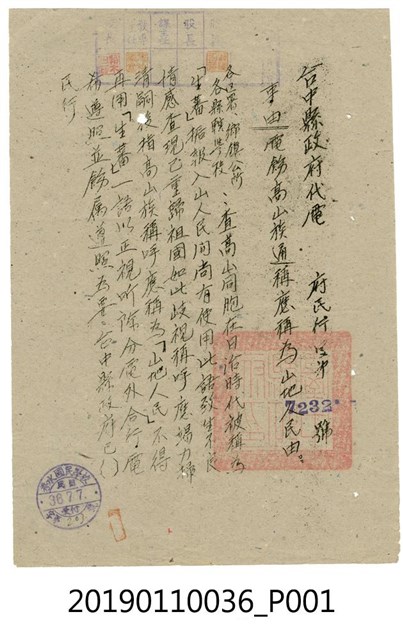 台中縣政府代電
府民行字第7232號
事由電飭高山族通稱應稱為山地人民由。
各區署、鄉鎮公所
各縣轄學校
:查高山同胞在日治時代被稱為
「生蕃」据報入山人民间尚有使用此語致生不良
情感查現已重歸祖國如此歧視稱呼應竭力掃
清嗣後指高山族稱呼應稱為「山地人民」不得
再用「生蕃」一語以正視听除分電外合行電
希遵照並飭属遵照為要台中縣政府已( )
民行
校長
36.7.7.
20190110036_P001